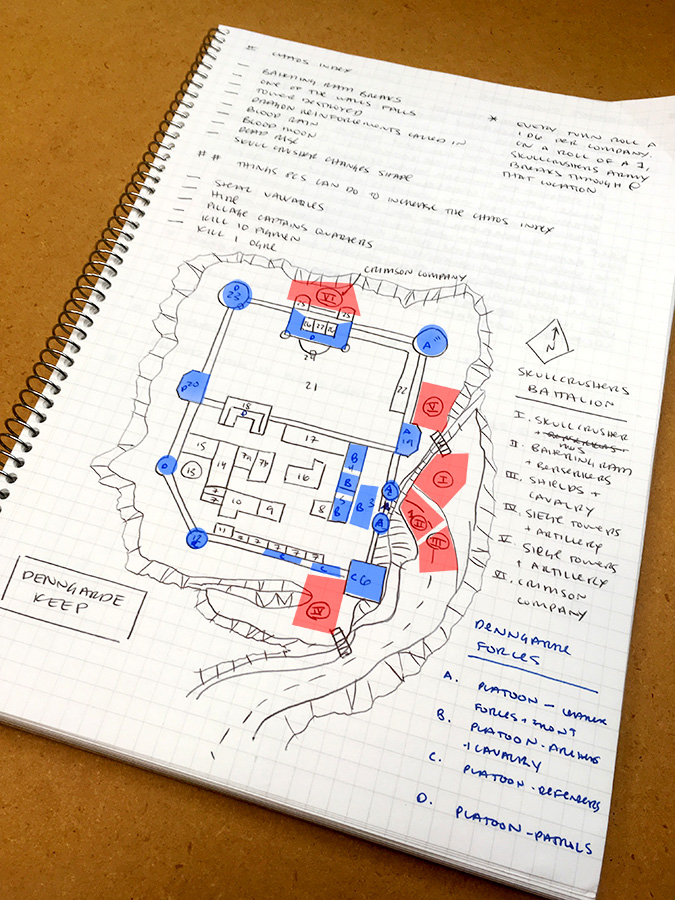 CHAOS INDEX
— BATTERING RAM BREAKS
— ONE OF THE WALLS FALLS
— TOWER DESTROYED
— DRAGON REINFORCEMENTS CALLED IN
— BLOOD RAIN
— BLOOD MOON
— DEAD RISE
— SKULL CRUSHER CHANGES SHAPE
## THINGS PCS CAN DO TO INCREASE THE CHAOS INDEX
— STEAL VALUABLES
— HIDE
— PILLAGE CAPTAINS QUARTERS
— KILL 10 PIGMEN
KILL 1 OGRE
* EVERY TURN ROLL A
1 D6 PER COMPANY.
ON A ROLL OF A 1
SKULLCRUSHERS ARMY
BREAKS THROUGH @
THAT LOCATION
CRIMSON COMPANY
D
23
VI
25
25
26 27 26
D
24
A
21
22
V
D 20
18
D
17
A
19
15
14
7A
7B
16
B
4
B
I
D
13
7
7
10
9
8
5
B
B 3
A2
A
II
III
12
11
7
7
7
7
C
C
C6
IV
N
SKULLCRUSHERS
BATTALION
I. SKULLCRUSHER
+
II. BATTERING RAM
+ BERSERKERS
III. SHIELDS +
CAVALRY
IV. SIEGE TOWERS
+ ARTILLERY
V. SIEGE TOWERS
+ ARTILLERY
VI. CRIMSON
COMPANY
DENNGARDE
KEEP
DENNGARDE
FORCES
A. PLATOON -
FORCES + FRONT
B. PLATOON - ARCHERS
+ CAVALRY
C. PLATOON - DEFENDERS
D. PLATOON - PATROLS